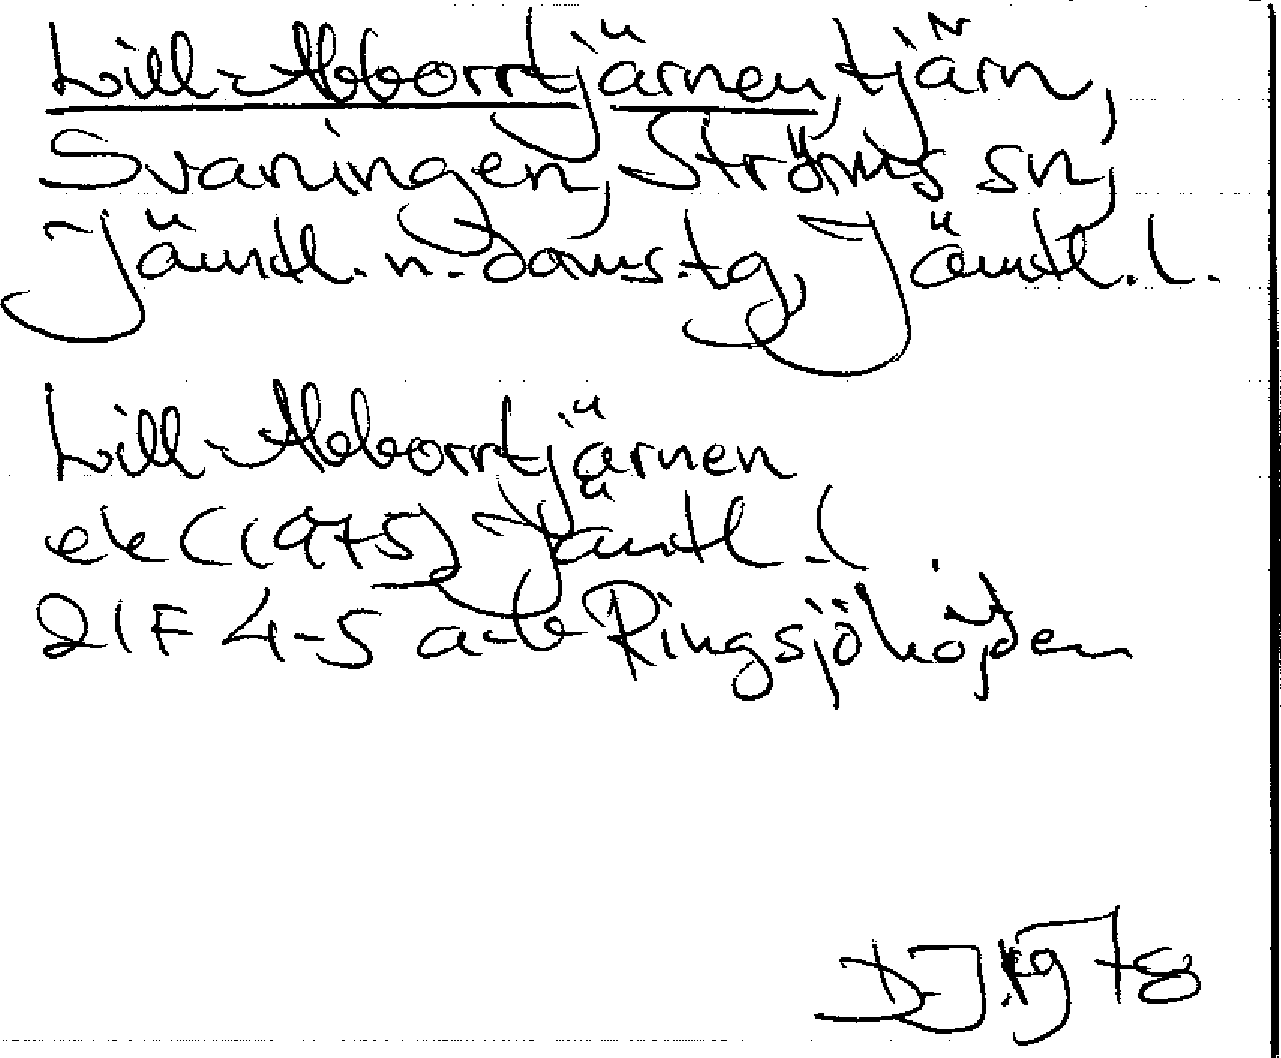 Lill-Abborrtjärnen, tjärn,
Svaningen, Ströms sn,
Jämtl. n. doms.tg, Jämtl. l.
Lill-Abborrtjärnen
ek (1975) Jämtl. l.
21F 4-5 a-b Ringsjöhöjden
1978